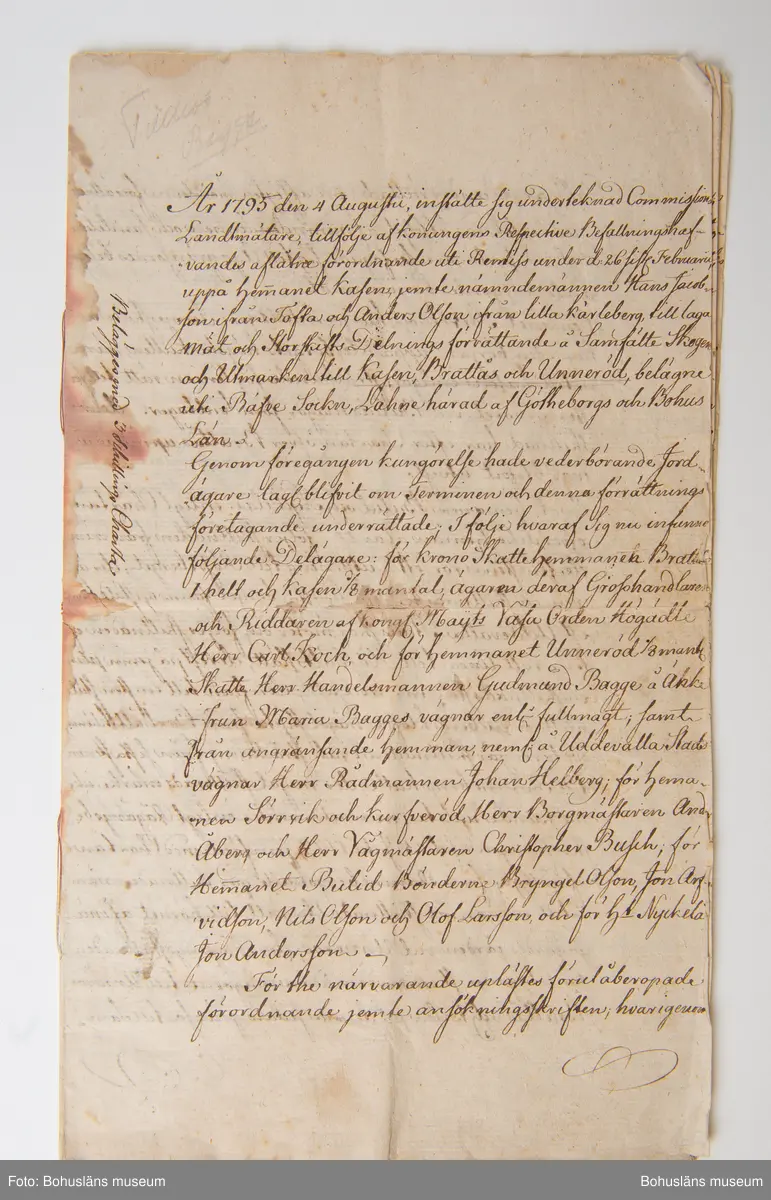 Bagge
År 1795 den 4 Augustii, instälte sig underteknad Commissions
Landtmätare, tillfölje af konungens Respective Befallningshaf-
vandes aflåtne förordnande uti Remiss under d. 26 sistl. Februarii
uppå hem̄anet Kasen, jemte nämndemännen Hans Jacob-
son ifrån Tofta och Anders Olson ifrån lilla kärleberg, till laga
Mät och Storskifts Delnings förrättande å Samfälte Skogen
och Utmarken till Kasen, Brattås och Unneröd, belägne
uti Bäfve Sockn, Lahne härad af Götheborgs och Bohus
Län.
Genom föregången kungörelse hade vederbörande Jord-
ägare lagl. blifvit om Terminen och denna förrättnings
företagande underrättade; I följe hvaraf sig nu infunno
följande Delägare: för krono Skatte hemmanen Brattås
1 helt och kasen 1/8 mantal, ägaren deraf Grosshandlaren
och Riddaren af kongl. Mayts Vasa Orden Högädle
Herr Carl Koch, och för hemmanet Unneröd 1/8 mantl
Skatte, Herr Handelsmannen Gudmund Bagge å Änke-
frun Maria Bagges vägnar enl. fullmagt; samt
från angränsande hemman, neml. å Uddevalla Stads
vägnar Herr Rådmannen Johan Helberg; för hema-
nen Sörrvik och kurfveröd, Herr Borgmästaren And.
Åberg och Herr Vågmästaren Christopher Busch; för
Hem̄anet Bulid Bönderne Bryngel Olson, Jon Arf-
vidson, Nils Olson och Olof Larsson, och för H:t Nyckelå
Jon Andersson.
För the närvarande uplästes förut åberopade
förordnande jemte ansökningsskriften; hvarigenom
Belägges med 3 Schillings Charta
Foto: Bohusläns museum
Bohusläns museum